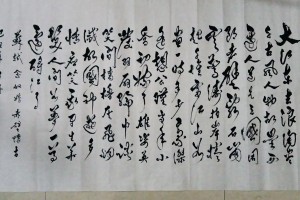 大江东去浪淘尽
千古风人物故垒西
边人道是三国周
郎赤壁乱石崩
云惊涛拍岸卷
起千堆雪江山如
画一时多少豪杰
遥想公瑾当年小
乔初嫁了雄姿英
发羽扇纶巾谈
笑间樯橹灰飞烟
灭故国神游多
情应笑我早生华
发人间如梦一尊
还酹江月
苏轼念奴娇赤壁怀古